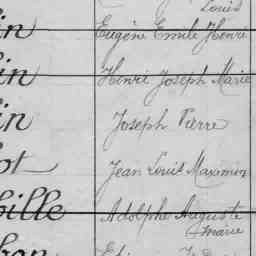 Louis
in Eugène Emile Henri
in Henri Joseph Marie
in Joseph Pierre
ot Jean Louis Maximin
bille Adolphe Auguste
Marie